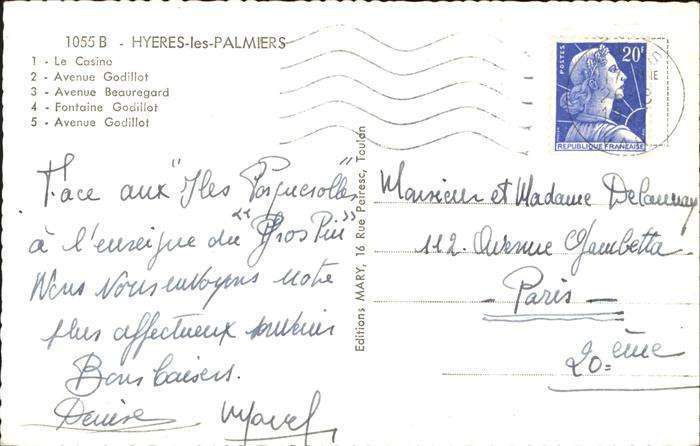 1055 B - HYERES-les-PALMIERS
1 - Le Casino
2 - Avenue Godillot
3 - Avenue Beauregard
4 - Fontaine Godillot
5 - Avenue Godillot
POSTES
20F
REPUBLIQUE FRANÇAISE
Face aux "Iles Porquerolles"
à l'enseigne du "Gros Pin"
Nous Vous envoyons notre
plus affectueux souvenir
Bons baisers.
Denise
Editions MARY, 16 Rue Peiresc, Toulon
Monsieur et Madame Delaunay
112 Avenue Gambetta
- Paris -
20=ème